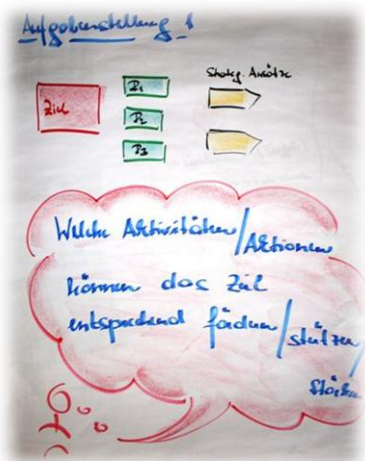 Aufgabenstellung 1
Strateg. Ansätze
Ziel
Z1
Z2
Z3
Welche Aktivitäten/Aktionen
können das Ziel
entsprechend fördern/stützen/
stärken